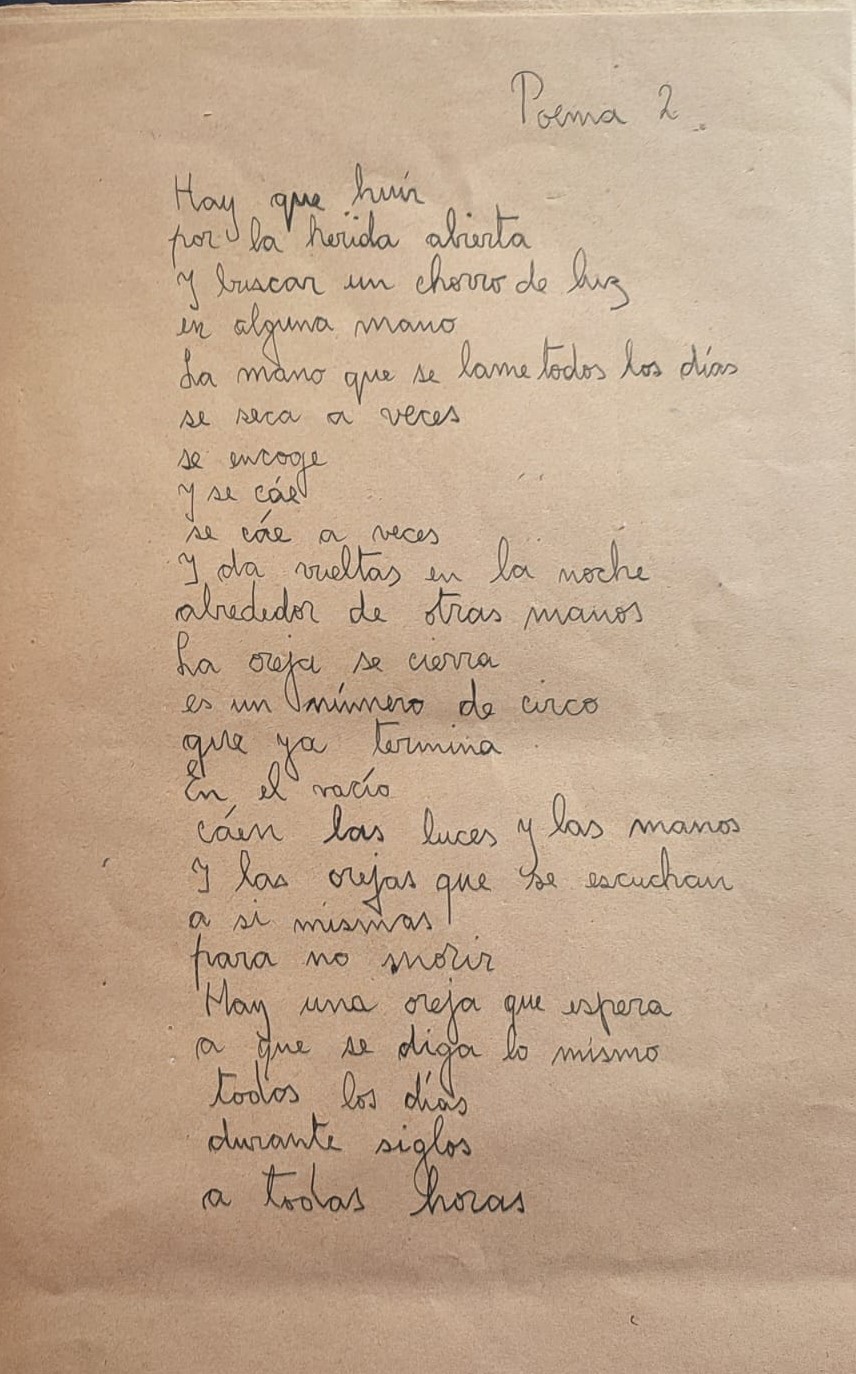 Poema 2.
Hay que huír
por la herida abierta
Y buscar un chorro de luz
en alguna mano
La mano que se lame todos los días
se seca a veces
se encoge
Y se cáe
se cáe a veces
Y da vueltas en la noche
alrededor de otras manos
La oreja se cierra
es un número de circo
que ya termina
En el vacío
cáen las luces y las manos
Y las orejas que se escuchan
a si mismas
para no morir
Hay una oreja que espera
a que se diga lo mismo
todos los días
durante siglos
a todas horas